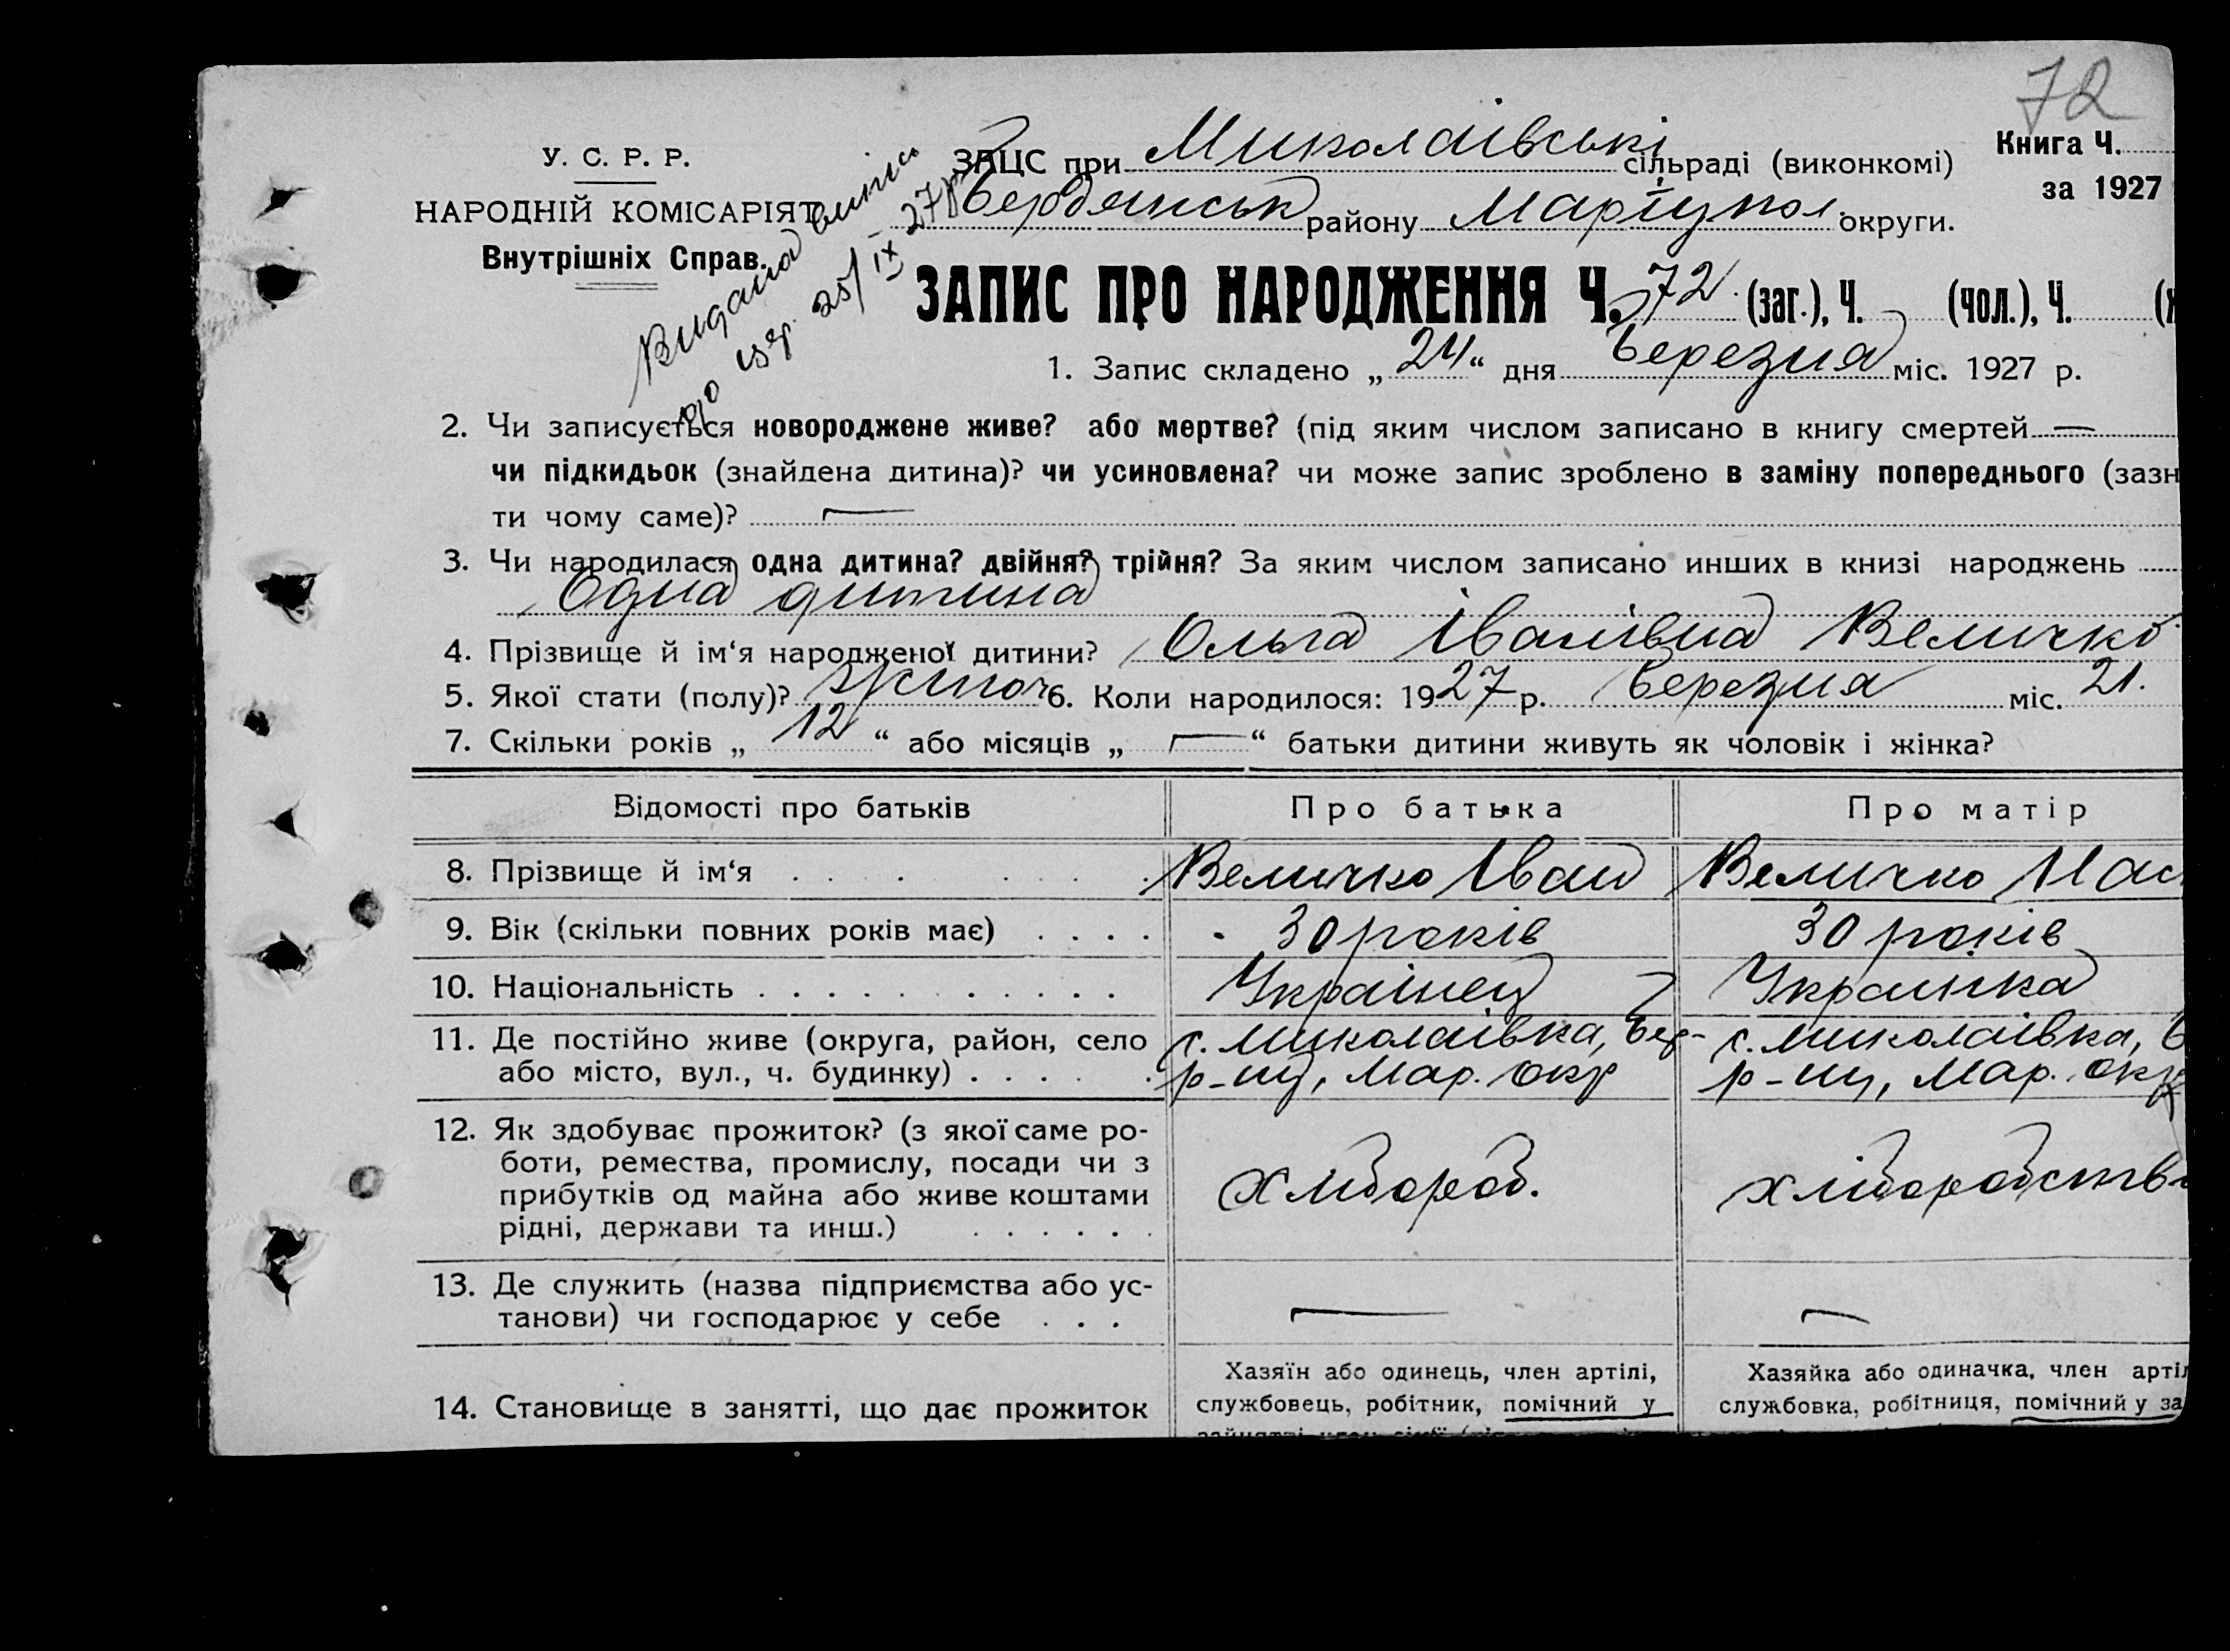 72
У. С. Р. Р.
НАРОДНІЙ КОМІСАРІЯТ
Внутрішніх Справ.
Видана випись
25/IX 27р
ЗАЦС при Миколаівські сільраді (виконкомі)
Бердянськ району Маріупол. округи.
Книга Ч.
за 1927
ЗАПИС ПРО НАРОДЖЕННЯ Ч. 72 (заг.), Ч. (чол.), Ч.
1. Запис складено „ 24 “ дня Березня міс. 1927 р.
2. Чи записується новороджене живе? або мертве? (під яким числом записано в книгу смертей —
чи підкидьок (знайдена дитина)? чи усиновлена? чи може запис зроблено в заміну попереднього (зазн
ти чому саме)? —
3. Чи народилася одна дитина? двійня? трійня? За яким числом записано инших в книзі народжень
Одна дитина
4. Прізвище й ім‘я народженої дитини? Ольга Іванівна Величко
5. Якої стати (полу)? жіноч 6. Коли народилося: 1927 р. Березня міс. 21.
7. Скільки років „ 12 “ або місяців „ — “ батьки дитини живуть як чоловік і жінка?
Відомості про батьків Про батька Про матір
8. Прізвище й ім‘я Величко Іван Величко Нас
9. Вік (скільки повних років має) 30 років 30 років
10. Національність Украінец Украінка
11. Де постійно живе (округа, район, село с. Миколаівка, Бер- с. Миколаівка, Б
або місто, вул., ч. будинку) р-ну, Мар. окр р-ну, Мар. окр
12. Як здобуває прожиток? (з якої саме ро-
боти, ремества, промислу, посади чи з
прибутків од майна або живе коштами хлібороб. хліборобств
рідні, держави та инш.)
13. Де служить (назва підприємства або ус-
танови) чи господарює у себе — —
14. Становище в занятті, що дає прожиток
Хазяїн або одинець, член артілі,
службовець, робітник, помічний у
Хазяйка або одиначка, член артіл
службовка, робітниця, помічний у за